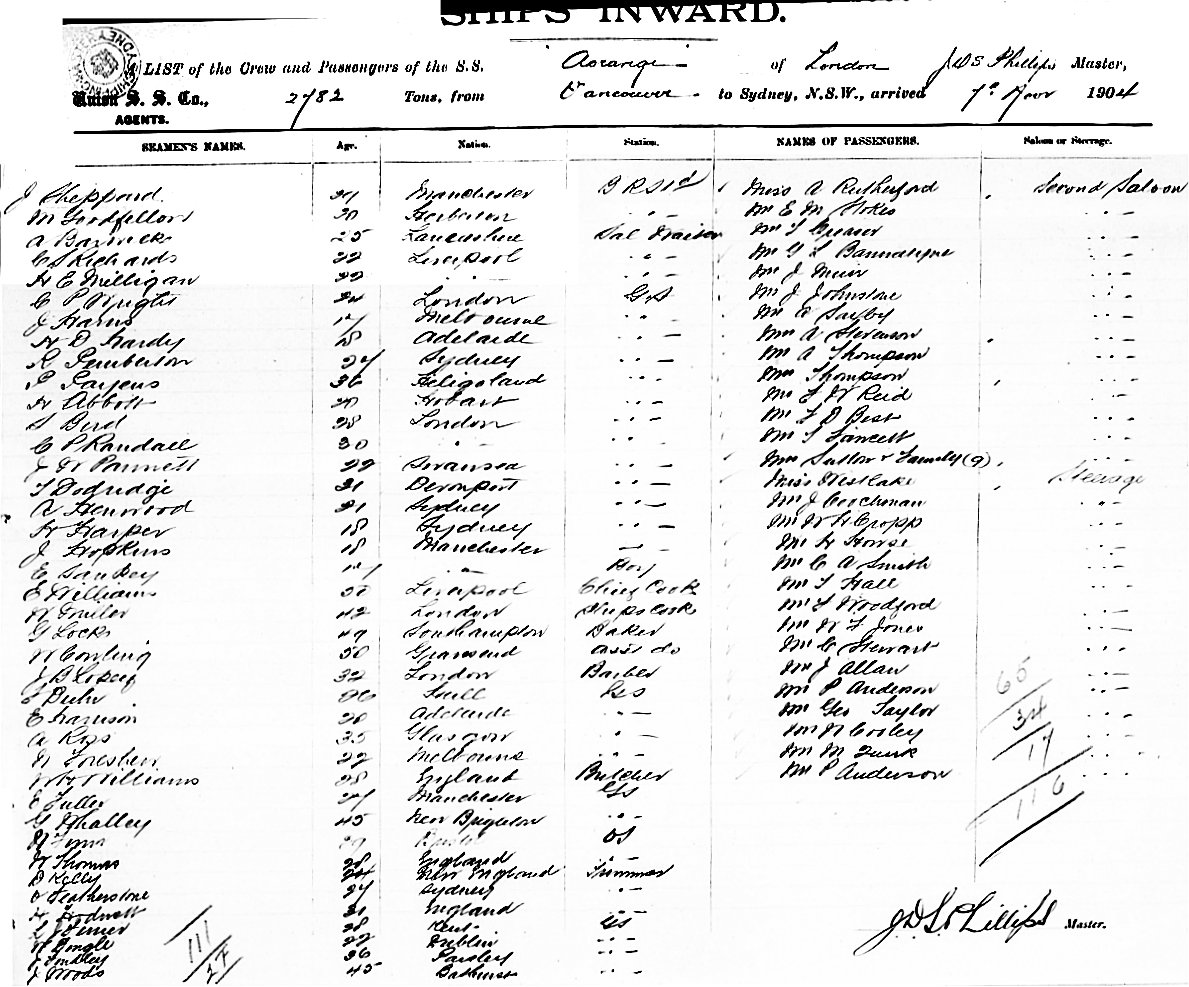 SHIPS INWARD.
LIST of the Crew and Passengers of the S.S. Aorangi of London J D S Phillips Master,
Union S. S. Co., 2782 Tons, from Vancouver to Sydney, N.S.W., arrived 7th Novr 1904
AGENTS.
SEAMEN'S NAMES. Age. Nation. Station. NAMES OF PASSENGERS. Saloon or Steerage.
J Sheppard 27 Manchester Miss A Rutherford Second Saloon
M Goodfellow 20 " - Mr E M Stokes " -
A Barwick 25 Lancashire Sal Waiter Mr T " -
C S Richards 22 Liverpool " - Mr G L Bannatyne " -
H E Milligan 22 " - " - Mr J Muir " -
C P Wright 24 London G S Mr J Johnstone " -
J Harris 17 Melbourne " - Mr Saxby " -
H D Hardy 18 Adelaide " - Mrs A Stevenson " -
R Pemberton 27 Sydney " - Mr A Thompson " -
P 36 Heligoland " - Mrs Thompson " -
H Abbott 20 Hobart " - Mr W Reid " -
S Bird 28 London " - Mr Best " -
C P Randall 30 " - " - Mr T Fawcett " -
J W Pannett 22 Swansea " - Mrs Sutton & Family (9) " -
T Dodridge 21 Devonport " - Miss Westlake Steerage
A Henwood 21 Sydney " - Mr J Coachman " -
H Harper 18 Sydney " - Mr W H Cropp " -
J Hopkins 18 Manchester " - Mr H Howse " -
E Sankey 17 " - Boy Mr C A Smith " -
E Williams 30 Liverpool Chief Cook Mr T Hall " -
W 42 London Ships Cook Mr Woodford " -
G Locks 49 Southampton Baker Mr W F Jones " -
W Cowling 50 Gravesend Asst do Mr C Stewart " -
J B 32 London Barber Mr J Allan " -
Buhr Hull Gs Mr P Anderson " -
E Harrison 20 Adelaide " - Mr Geo Taylor " -
A Ross 35 Glasgow " - Mr Cooley " -
22 Melbourne " - Mr M " -
W H Williams 28 England Butcher Mr P Anderson " -
Fuller 27 Manchester Gs
G Whalley 45 New Brighton " -
OS
W Thomas 28 England " -
D Kelly 24 New England Trimmer
Featherstone 27 Sydney " -
H Hodnett 31 England
28 Kent Gs
22 Dublin " -
J Findley 36 Paisley " -
J Woods 45 Bathurst " -
65
34
17
116
111
27
J D S Phillips Master.